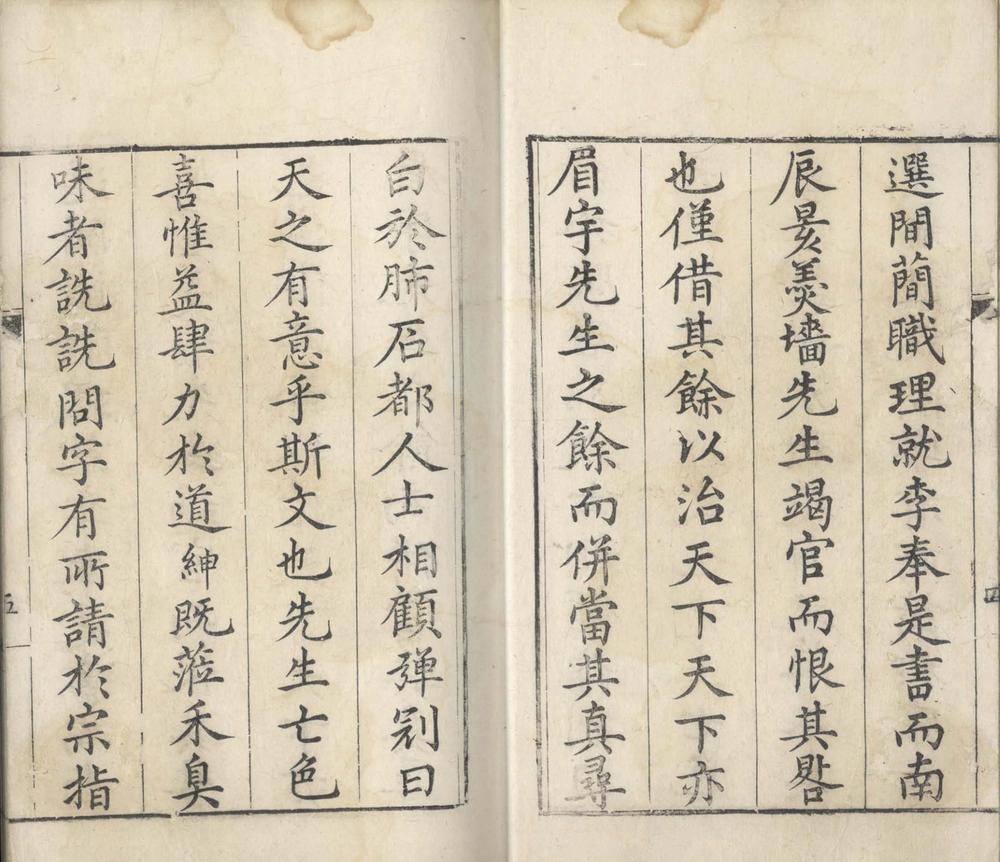 選間蕳職理就李奉是書而南
辰羹墻先生竭官而恨其
也僅借其餘以治天下天下亦
眉宇先生之餘而併當其真尋
四
白於肺石都人士相顧彈冠曰
天之有意乎斯文也先生亡色
喜惟益肆力於道紳既蒞禾臭
味者詵詵問字有所請於宗指
五